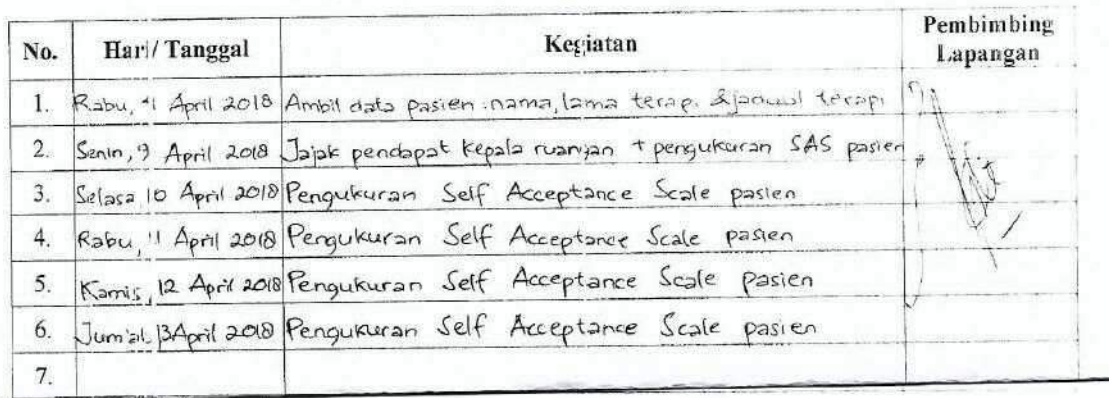 No. Hari/ Tanggal Kegiatan Pembimbing Lapangan
1. Rabu, 4 April 2018 Ambil data pasien : nama, lama terapi & jadwal terapi
2. Senin, 9 April 2018 Jajak pendapat kepala ruangan + pengukuran SAS pasien
3. Selasa 10 April 2018 Pengukuran Self Acceptance Scale pasien
4. Rabu, 11 April 2018 Pengukuran Self Acceptance Scale pasien
5. Kamis, 12 April 2018 Pengukuran Self Acceptance Scale pasien
6. Jum'at, 13 April 2018 Pengukuran Self Acceptance Scale pasien
7.